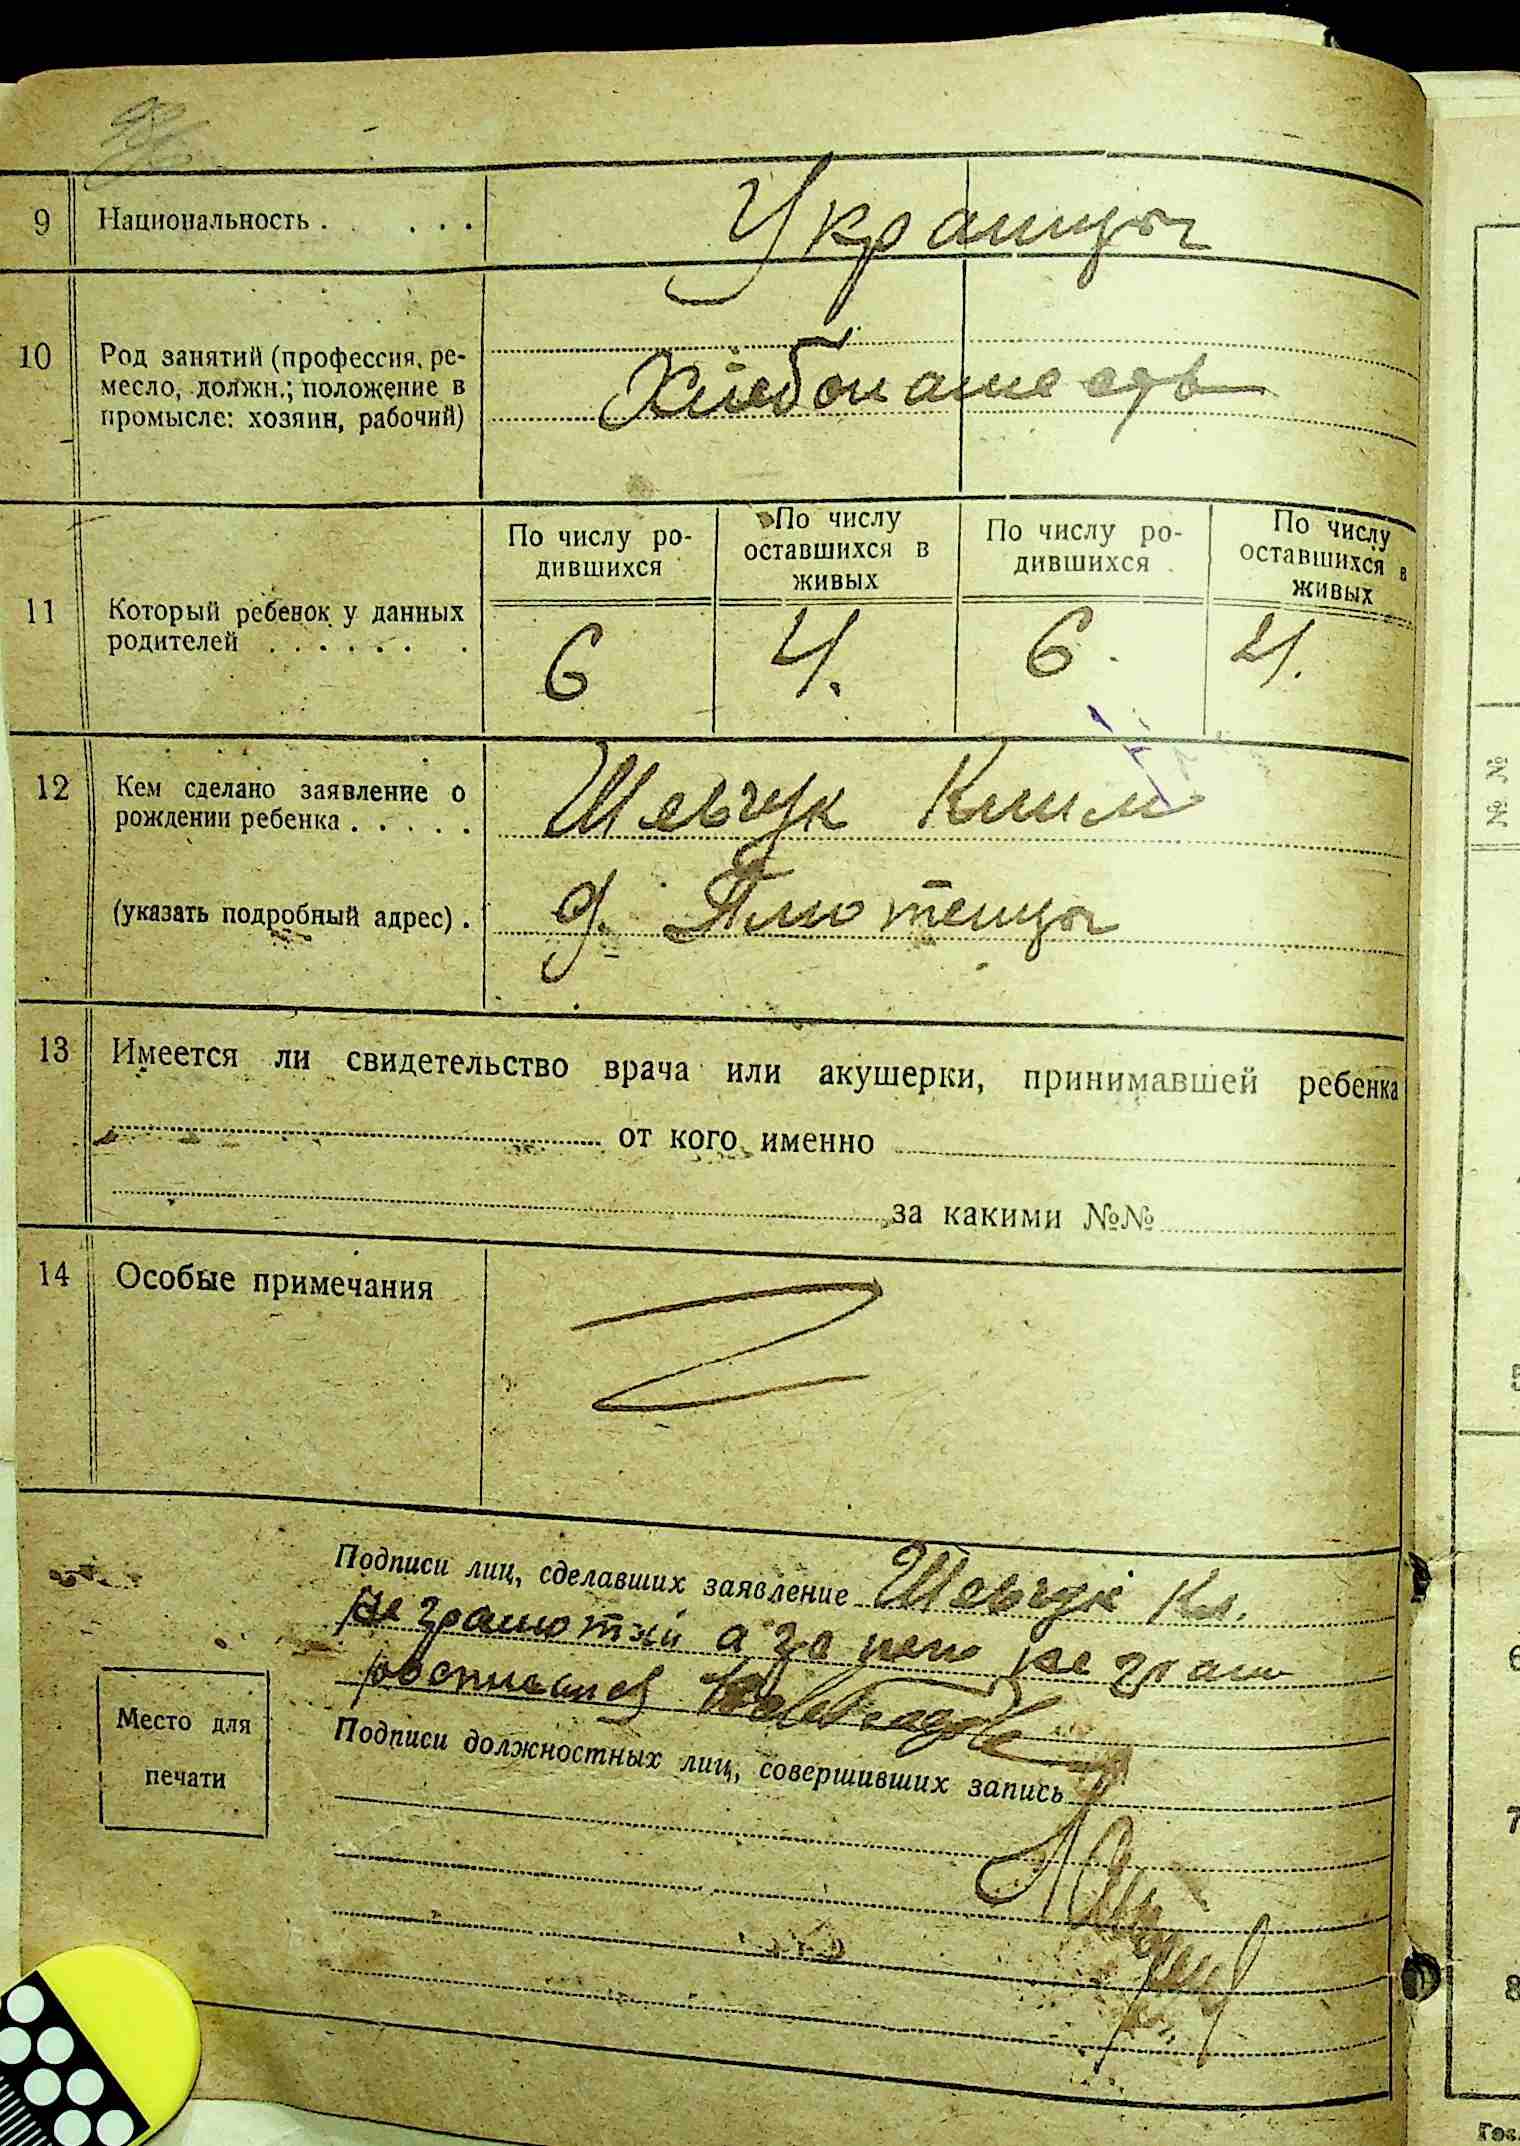 9 Национальность . . . . Украинцы
10 Род занятий (профессия, ре-
месло, должн.; положение в
промысле: хозяин, рабочий)
Хлебопашеств
По числу ро-
дившихся
По числу
оставшихся в
живых
По числу ро-
дившихся
По числу
оставшихся в
живых
11 Который ребенок у данных
родителей . . . . . . .
6 4. 6. 4.
12 Кем сделано заявление о
рождении ребенка . . . . .
Шевчук Клим
(указать подробный адрес) . д. Плютенцы
13 Имеется ли свидетельство врача или акушерки, принимавшей ребенка
от кого именно
за какими №№
14 Особые примечания
Подписи лиц, сделавших заявление Шевчук Кл.
не грамотный а за него
росписался
Подписи должностных лиц, совершивших запись
Место для
печати
№ №
5
6
7
8
Гос.